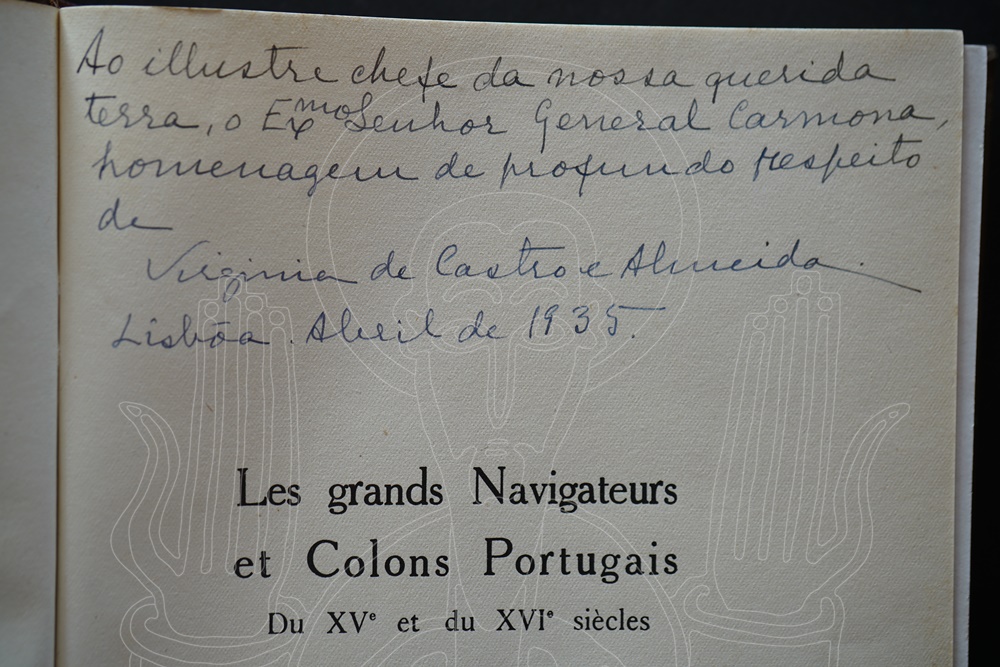 Ao illustre chefe da nossa querida
terra, o Exmo Senhor General Carmona,
homenagem de profundo respeito
de
Virginia de Castro e Almeida.
Lisbôa. Abril de 1935.
Les grands Navigateurs
et Colons Portugais
Du XVe et du XVIe siècles